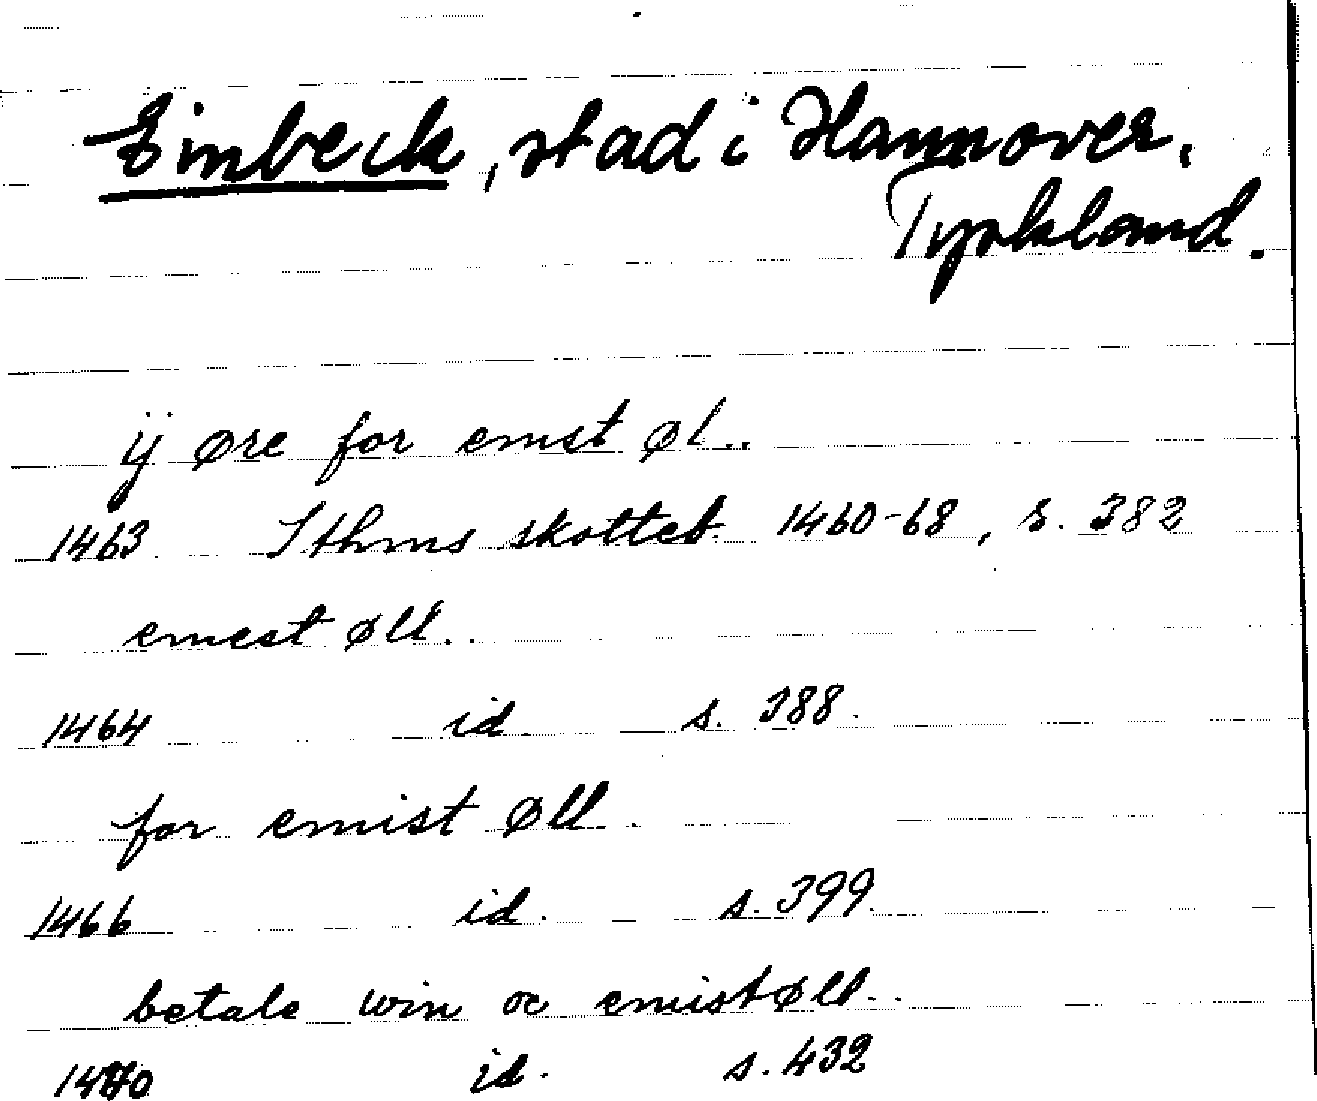 Einbeck, stad i Hannover,
Tyskland.
ij øre for emst øl..
1463 Sthms skotteb. 1460-68, s. 382
emest øll..
1464 id. s. 388.
for emist øll.
1466 id. s. 399.
betale win oc emist øll..
1470 id. s. 432